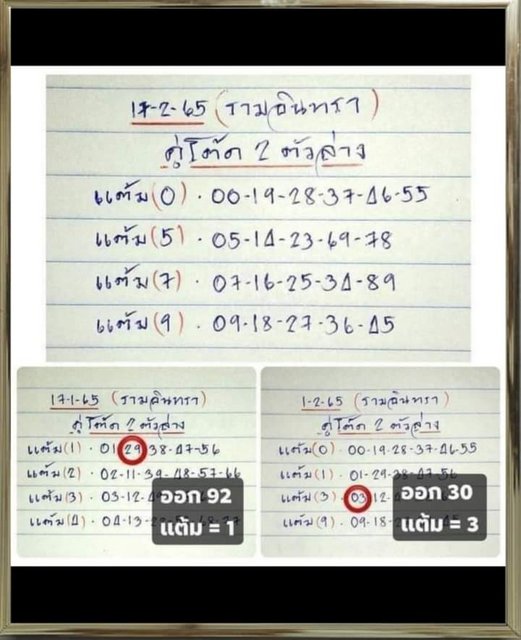 17-2-65 (รามอินทรา)
คู่โต๊ด 2 ตัวล่าง
แต้ม(0) · 00-19-28-37-46-55
แต้ม(5) · 05-14-23-69-78
แต้ม(7) · 07-16-25-34-89
แต้ม(9) · 09-18-27-36-45
17-1-65 (รามอินทรา)
คู่โต๊ด 2 ตัวล่าง
แต้ม(1) · 01-29-38-47-56
แต้ม(2) · 02-11-39-48-57-66
แต้ม(3) · 03-12
แต้ม(4) · 04-13
ออก 92
แต้ม = 1
1-2-65 (รามอินทรา)
คู่โต๊ด 2 ตัวล่าง
แต้ม(0) · 00-19-28-37-46-55
แต้ม(1) · 01-29-38-47-56
แต้ม(3) · 03-12
แต้ม(9) · 09-18
ออก 30
แต้ม = 3